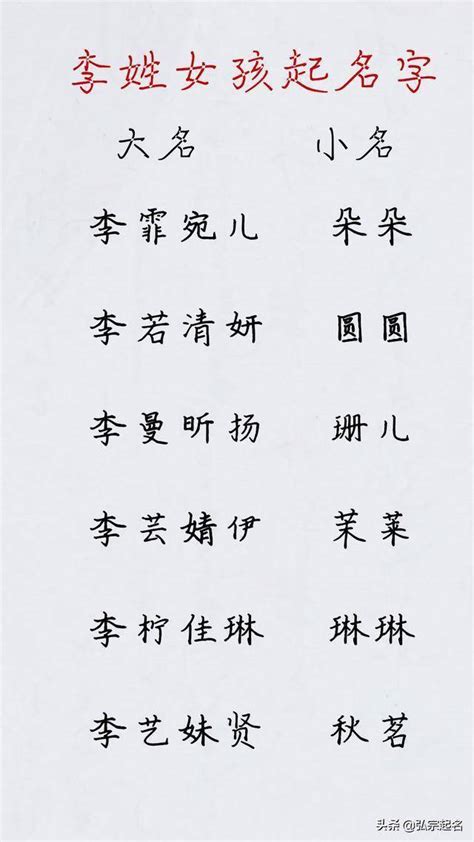 李姓女孩起名字
大名 小名
李霏宛儿 朵朵
李若清妍 圆圆
李曼昕扬 珊儿
李芸婧伊 茉莱
李柠佳琳 琳琳
李艺妹贤 秋茗
头条 @弘宗起名